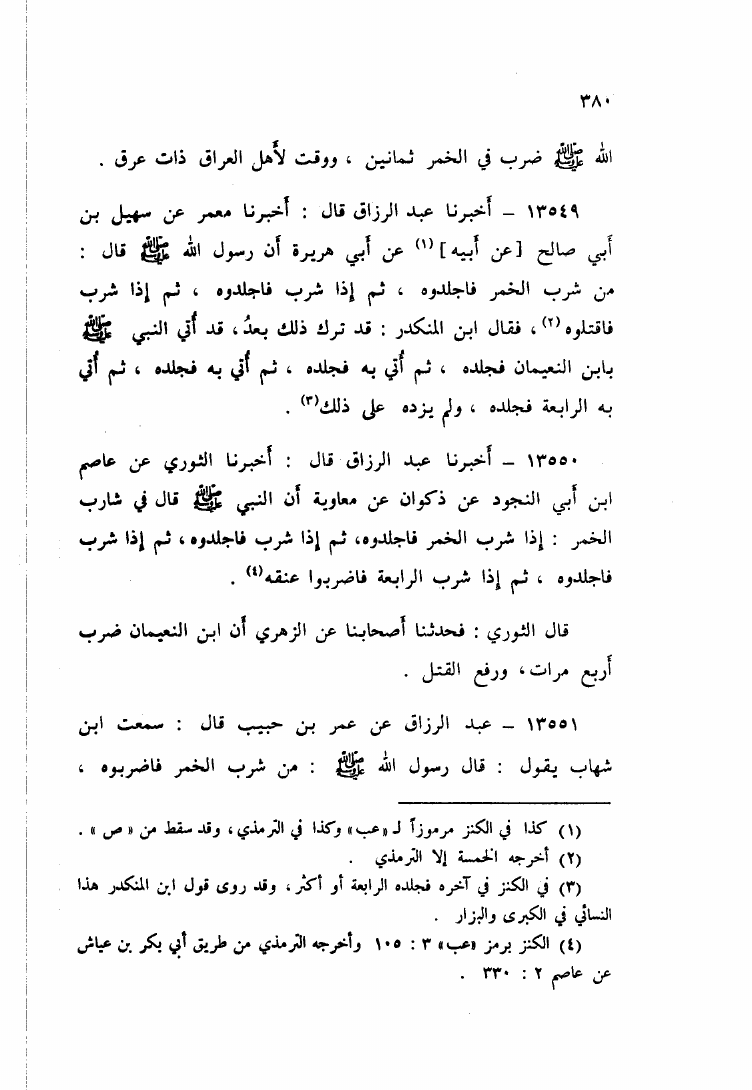 ٣٨٠
الله ﷺ ضرب في الخمر ثمانين ، ووقت لأهل العراق ذات عرق .
١٣٥٤٩ – أخبرنا عبد الرزاق قال : أخبرنا معمر عن سهيل بن
أبي صالح [عن أبيه] (١) عن أبي هريرة أن رسول الله ﷺ قال :
من شرب الخمر فاجلدوه ، ثم إذا شرب فاجلدوه ، ثم إذا شرب
فاقتلوه (٢) ، فقال ابن المنكدر : قد ترك ذلك بعدُ، قد أُتي النبي ﷺ
بابن النعيمان فجلده ، ثم أُتي به فجلده ، ثم أُتي به فجلده ، ثم أُتي
به الرابعة فجلده ، ولم يزده على ذلك(٣) .
١٣٥٥٠ – أخبرنا عبد الرزاق قال : أخبرنا الثوري عن عاصم
ابن أبي النجود عن ذكوان عن معاوية أن النبي ﷺ قال في شارب
الخمر : إذا شرب الخمر فاجلدوه، ثم إذا شرب فاجلدوه، ثم إذا شرب
فاجلدوه ، ثم إذا شرب الرابعة فاضربوا عنقه(٤) .
قال الثوري : فحدثنا أصحابنا عن الزهري أن ابن النعيمان ضرب
أربع مرات، ورفع القتل .
١٣٥٥١ – عبد الرزاق عن عمر بن حبيب قال : سمعت ابن
شهاب يقول : قال رسول الله ﷺ : من شرب الخمر فاضربوه ،
(١) كذا في الكنز مرموزاً لـ «عب» وكذا في الترمذي، وقد سقط من « ص » .
(٢) أخرجه الخمسة إلا الترمذي .
(٣) في الكنز في آخره فجلده الرابعة أو أكثر، وقد روى قول ابن المنكدر هذا
النسائي في الكبرى والبزار .
(٤) الكنز برمز «عب» ٣ : ١٠٥ وأخرجه الترمذي من طريق أبي بكر بن عياش
عن عاصم ٢ : ٣٣٠ .